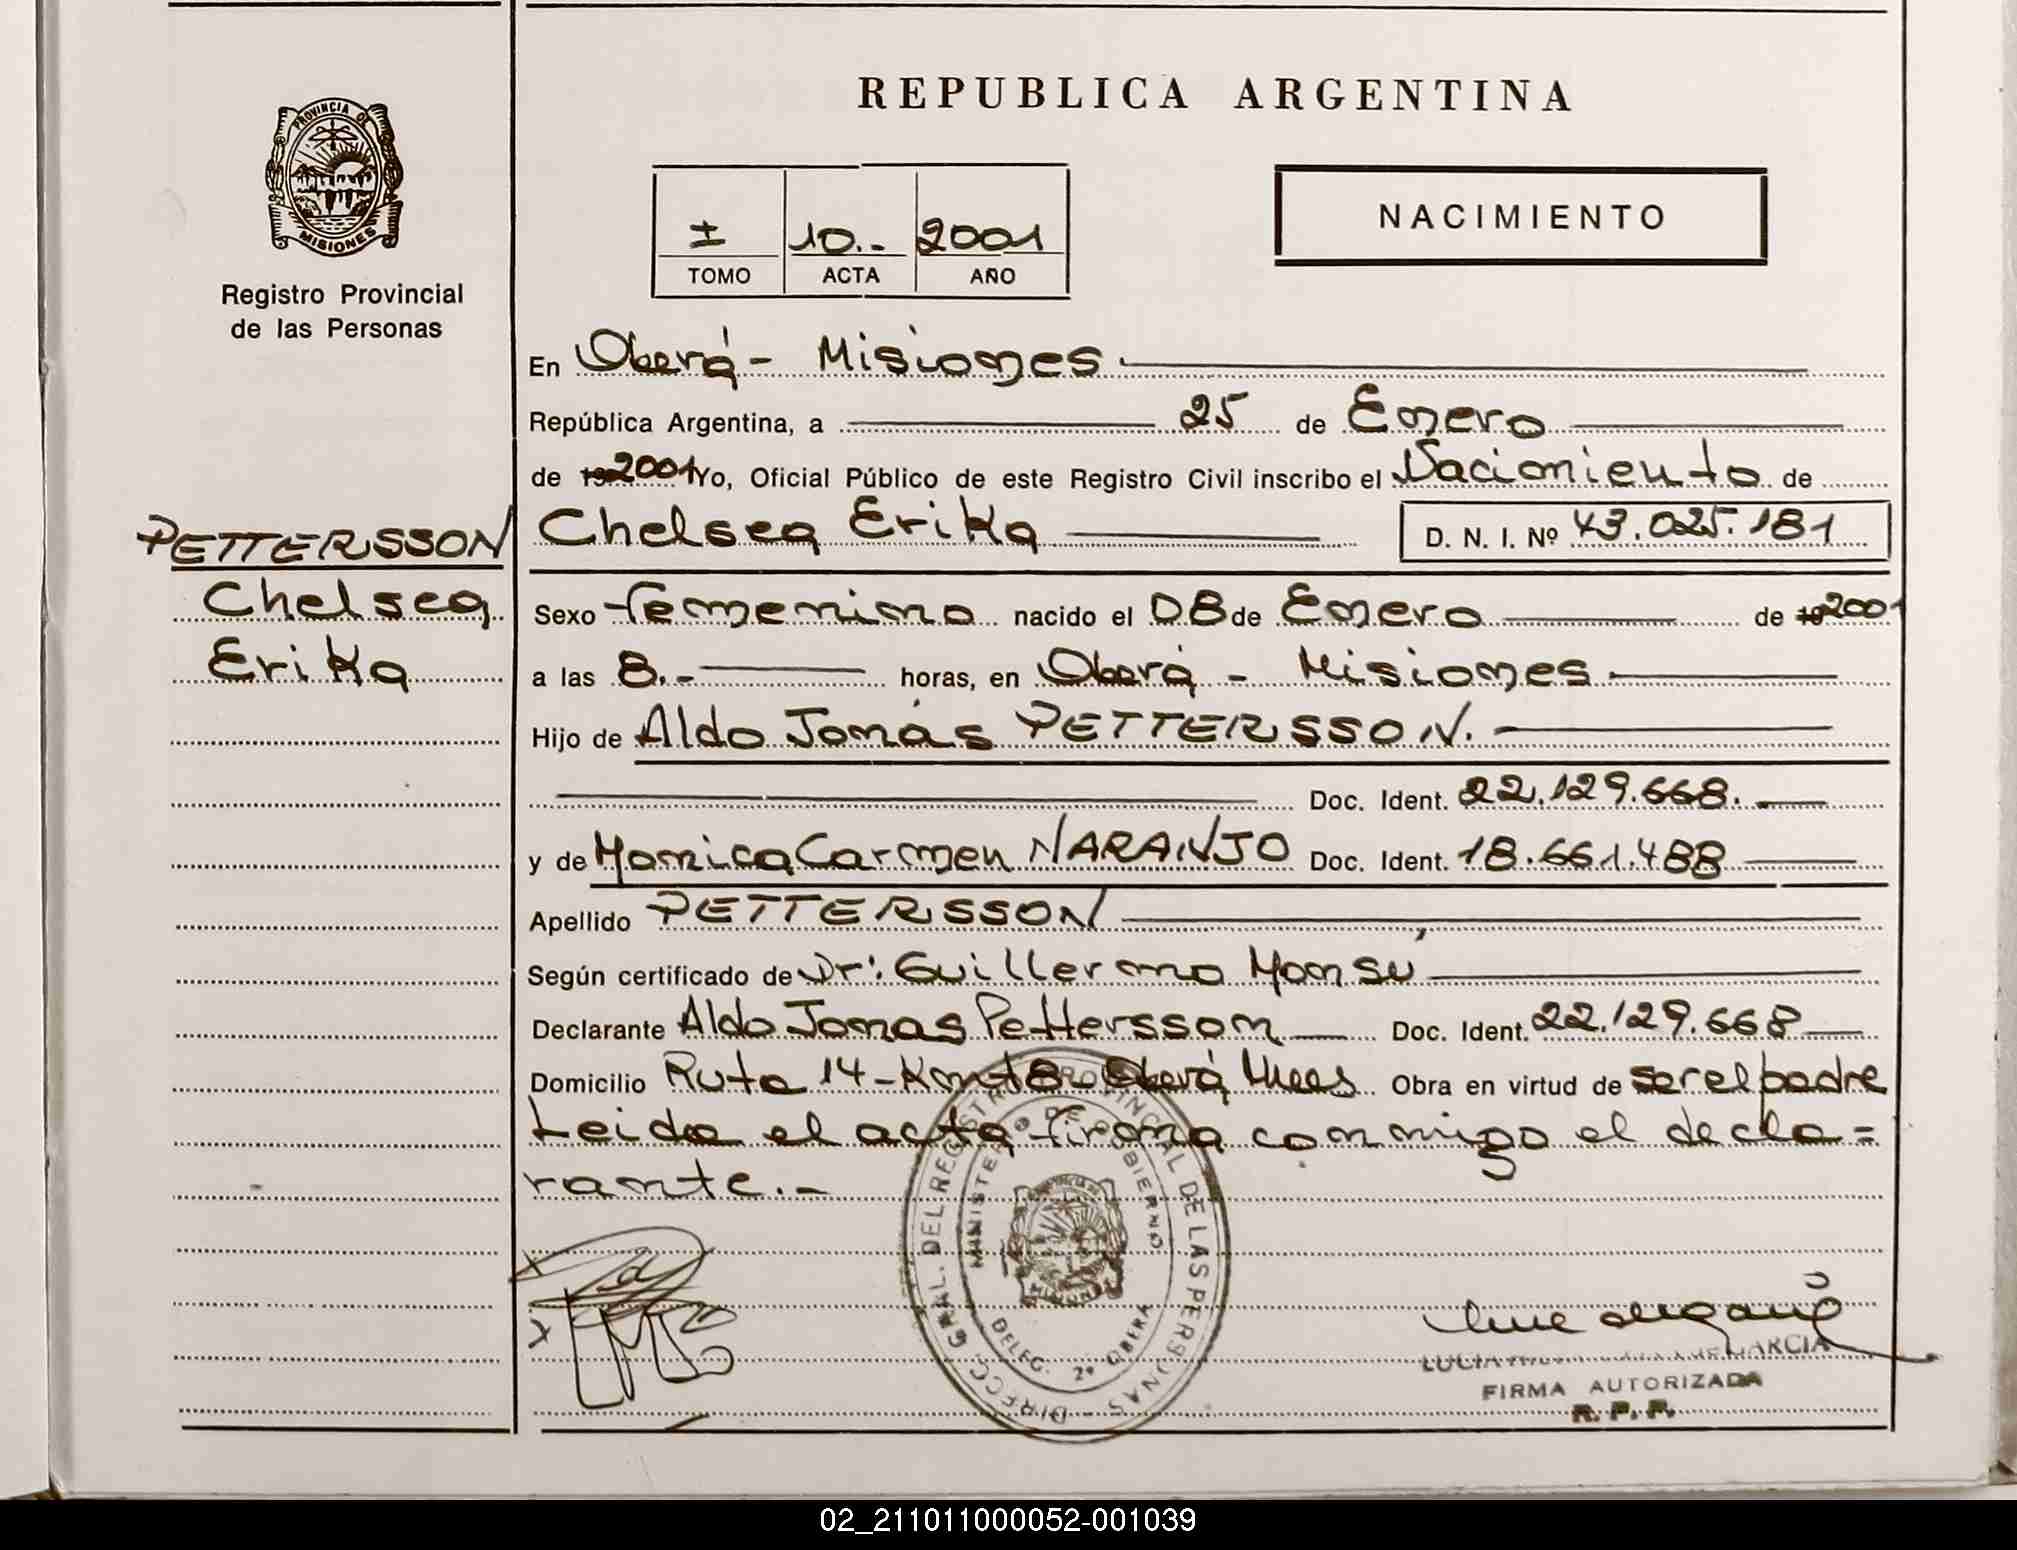 REPUBLICA ARGENTINA
PROVINCIA DE
MISIONES
Registro Provincial
de las Personas
NACIMIENTO
I 10.- 2001
TOMO ACTA AÑO
En Oberá - Misiones
República Argentina, a 25 de Enero
de 192001 Yo, Oficial Público de este Registro Civil inscribo el Nacimiento de
PETTERSSON
Chelsea
Erika
Chelsea Erika D. N. I. Nº 43.025.181
Sexo femenino nacido el 08 de Enero de 192001
a las 8.- horas, en Oberá - Misiones
Hijo de Aldo Jonás PETTERSSON.
Doc. Ident. 22.129.668.
y de Monica Carmen NARANJO Doc. Ident. 18.661.488
Apellido PETTERSSON
Según certificado de Dr: Guillermo Monsú
Declarante Aldo Jonas Pettersson Doc. Ident. 22.129.668
Domicilio Ruta 14 - Oberá Mnes Obra en virtud de ser el padre
Leida el acta firma conmigo el decla=
rante.-
DIRECC. GRAL. DEL REGISTRO PROVINCIAL DE LAS PERSONAS
MINISTERIO DE GOBIERNO
DELEG. 2ª OBERA
MISIONES
LUCIA GARCIA
FIRMA AUTORIZADA
R. P. P.
02_211011000052-001039